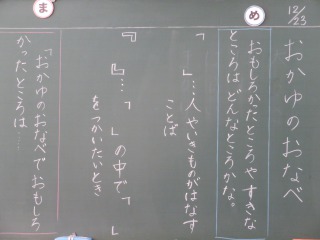 12/23
おかゆのおなべ
め
おもしろかったところやすきな
ところは どんなところかな。
「　」…人やいきものがはなす
ことば
『　』…「　」の中で「　」
をつかいたいとき
ま
「おかゆのおなべでおもしろ
かったところは…